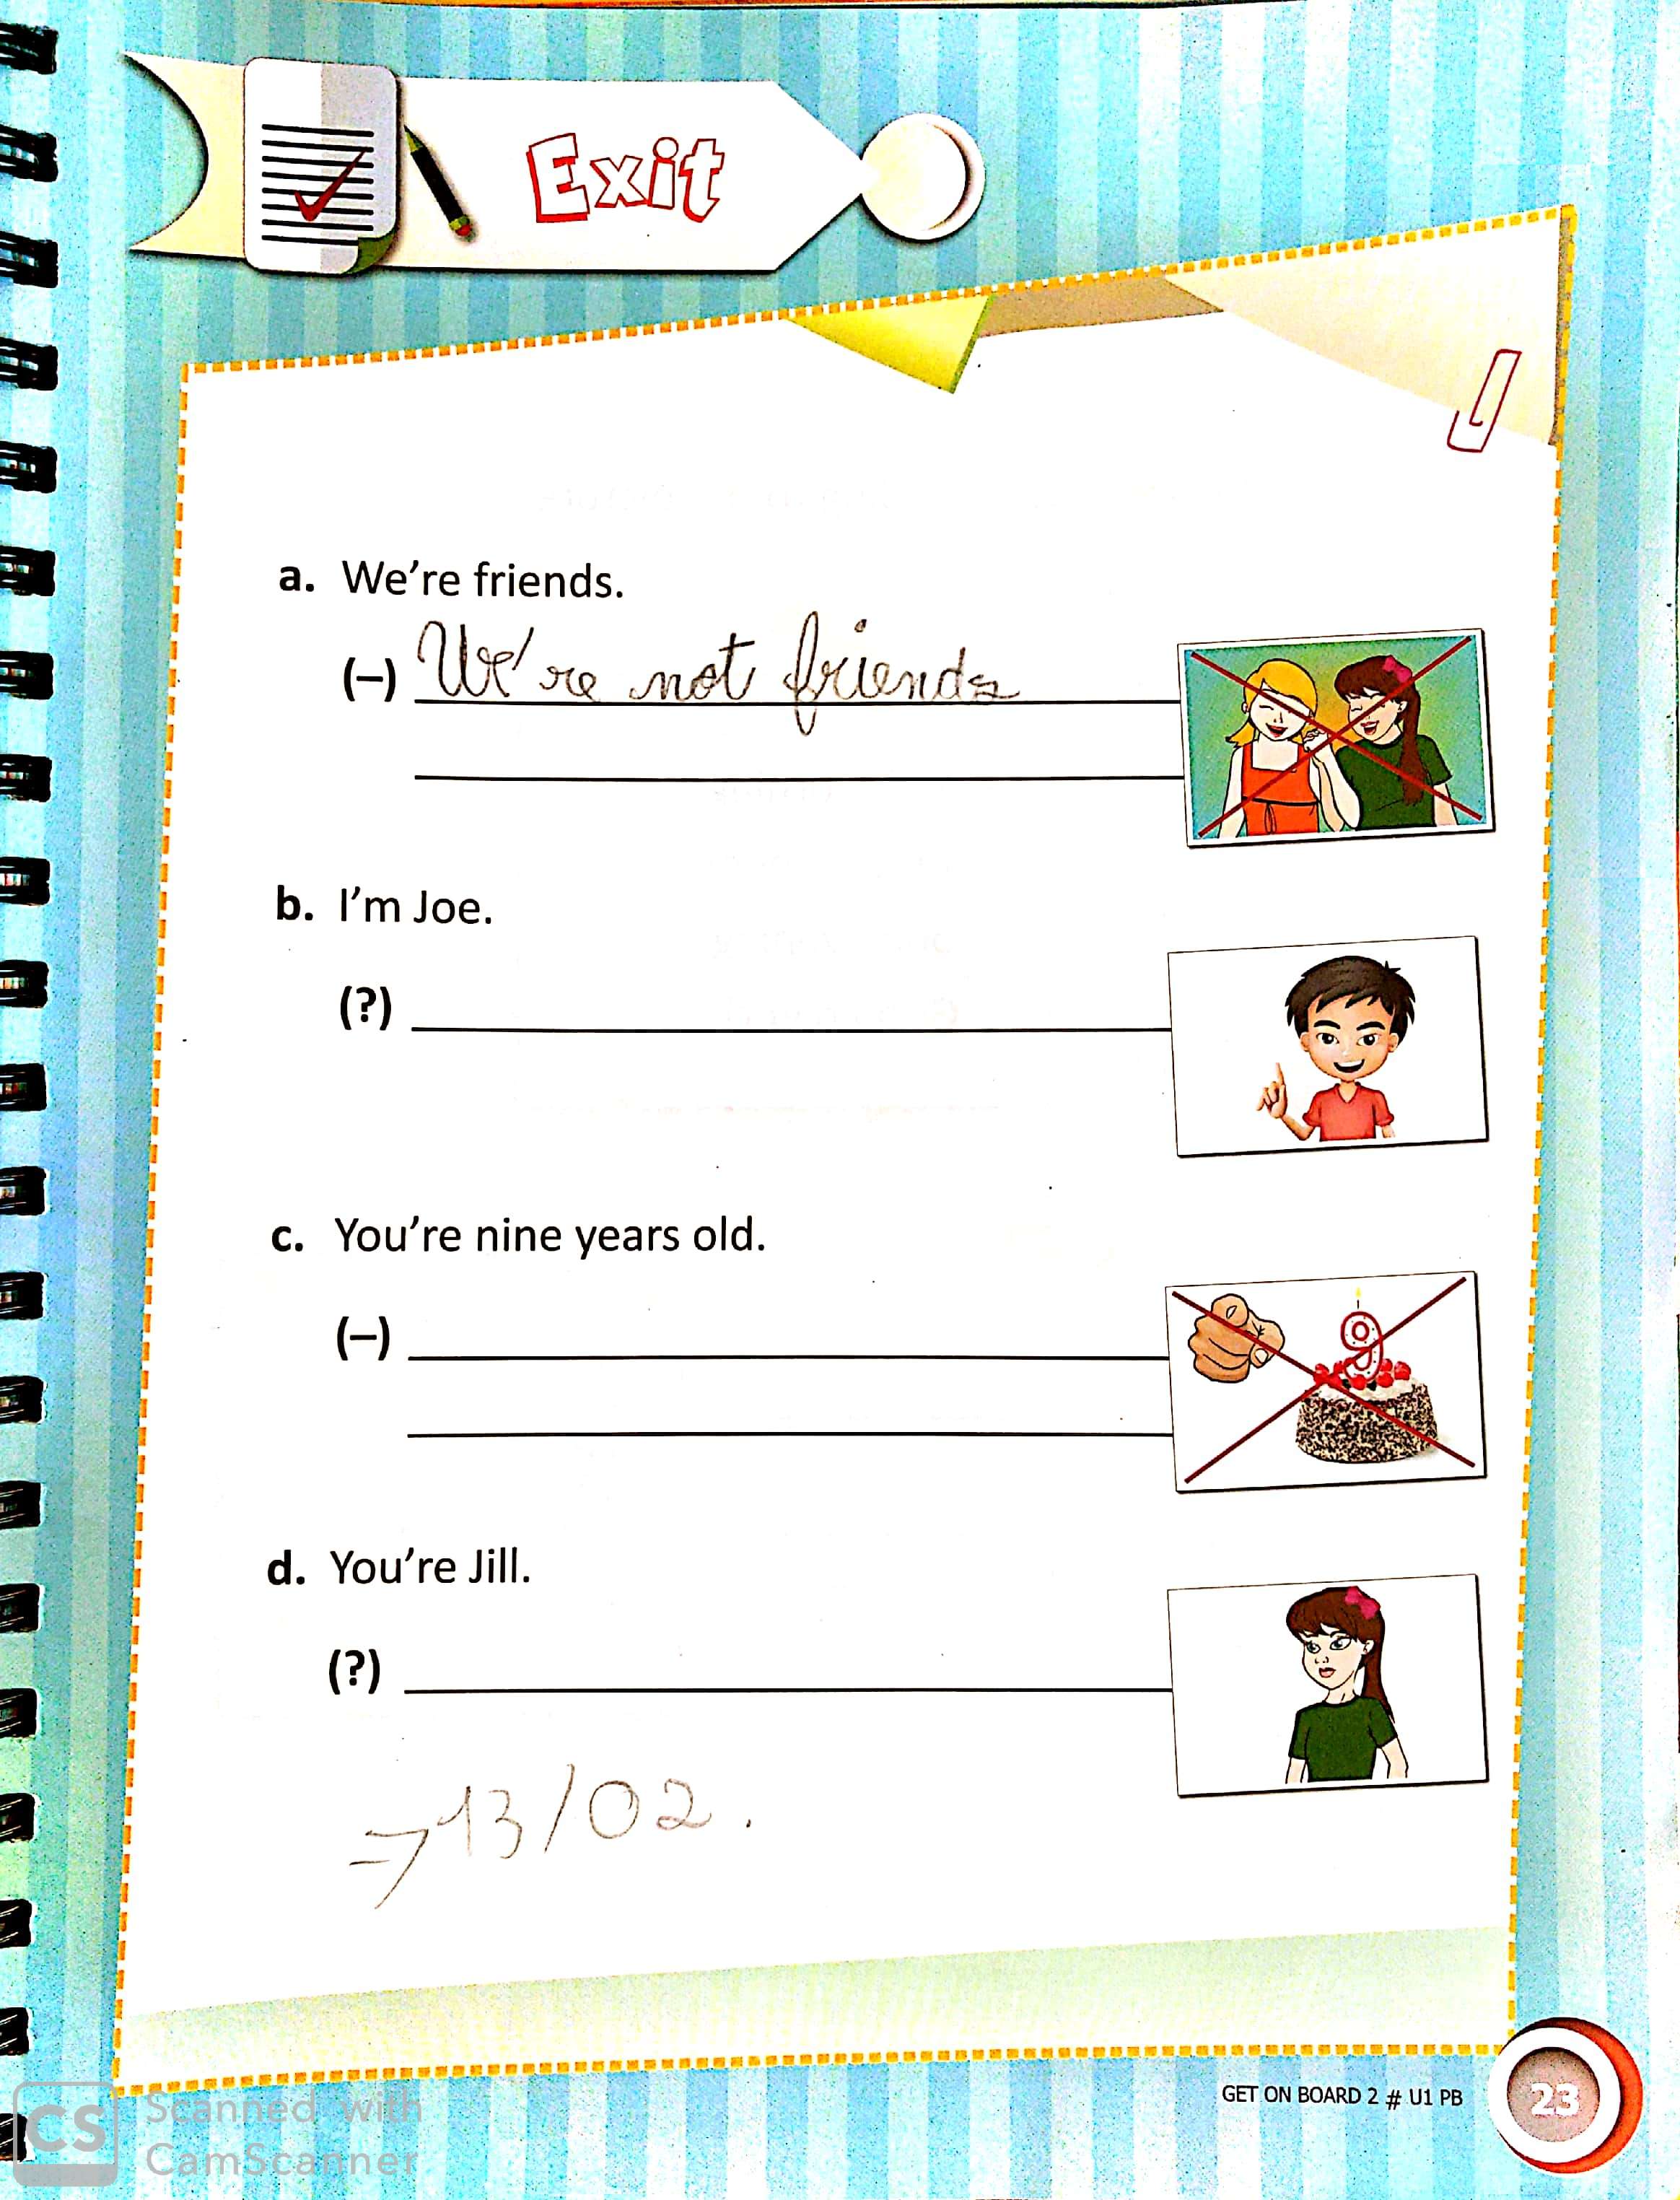 Exit
a. We're friends.
(–) We're not friends
b. I'm Joe.
(?)
c. You're nine years old.
(–)
9
d. You're Jill.
(?)
→ 13/02.
GET ON BOARD 2 # U1 PB
23
CS Scanned with
CamScanner